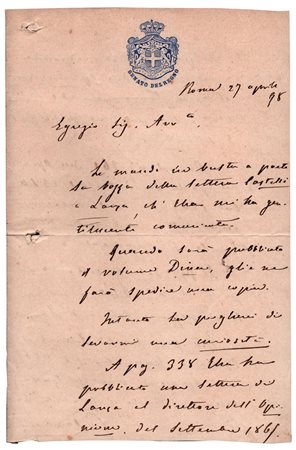 SENATO DEL REGNO
Roma 27 aprile
98
Egregio Sig. Avv.
Le mando in busta a parte
la della lettera Castelli
a Lanza, ch'Ella mi ha gen-
tilmente comunicata.
Quando sarà pubblicato
il volume gliene
farò spedire una copia.
Intanto La pregherei di
levarmi una curiosità.
A pag. 338 Ella ha
pubblicato una lettera di
Lanza al direttore dell'Opi-
nione, del settembre 1865